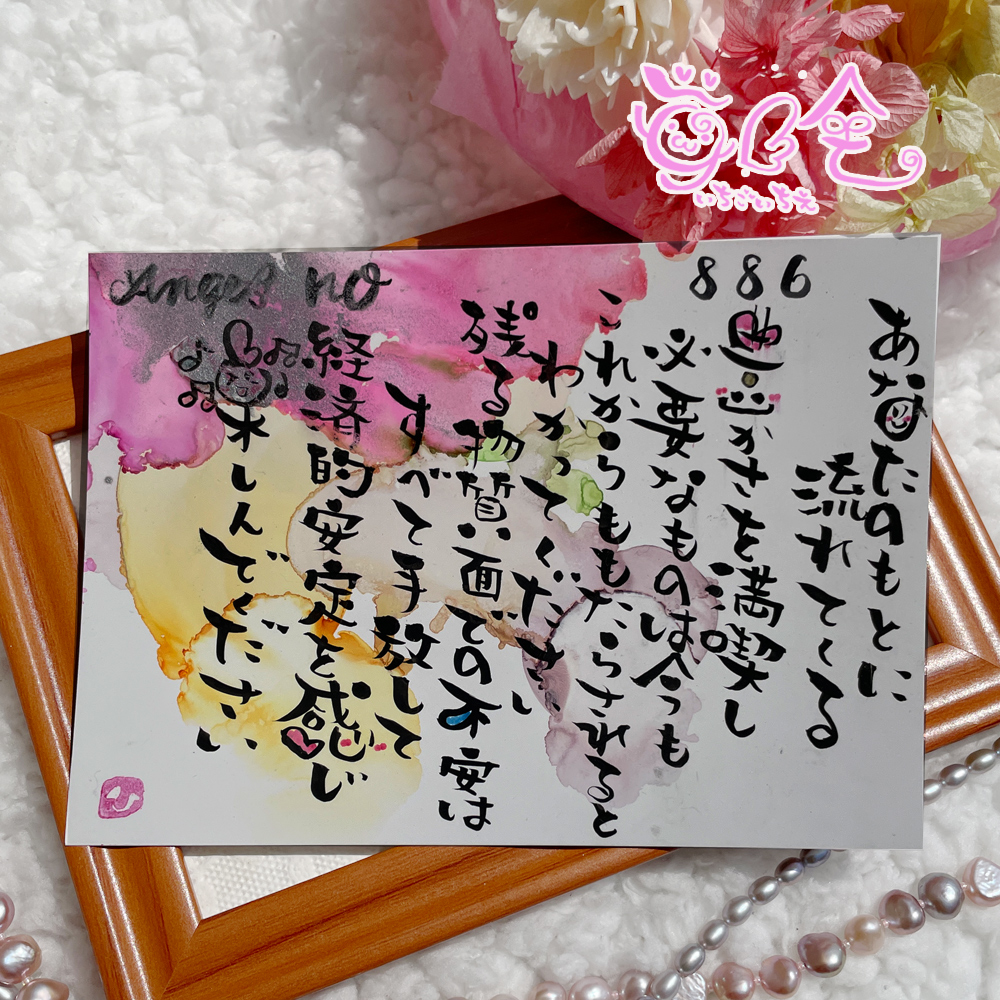 Angel no
886
あなたのもとに
流れてくる
豊かさを満喫し
必要なものは今も
これからももたらされると
わかってください
残る物質い面での不安は
すべて手放して
経済的安定と感じ
楽しんでください
いちごいちえ